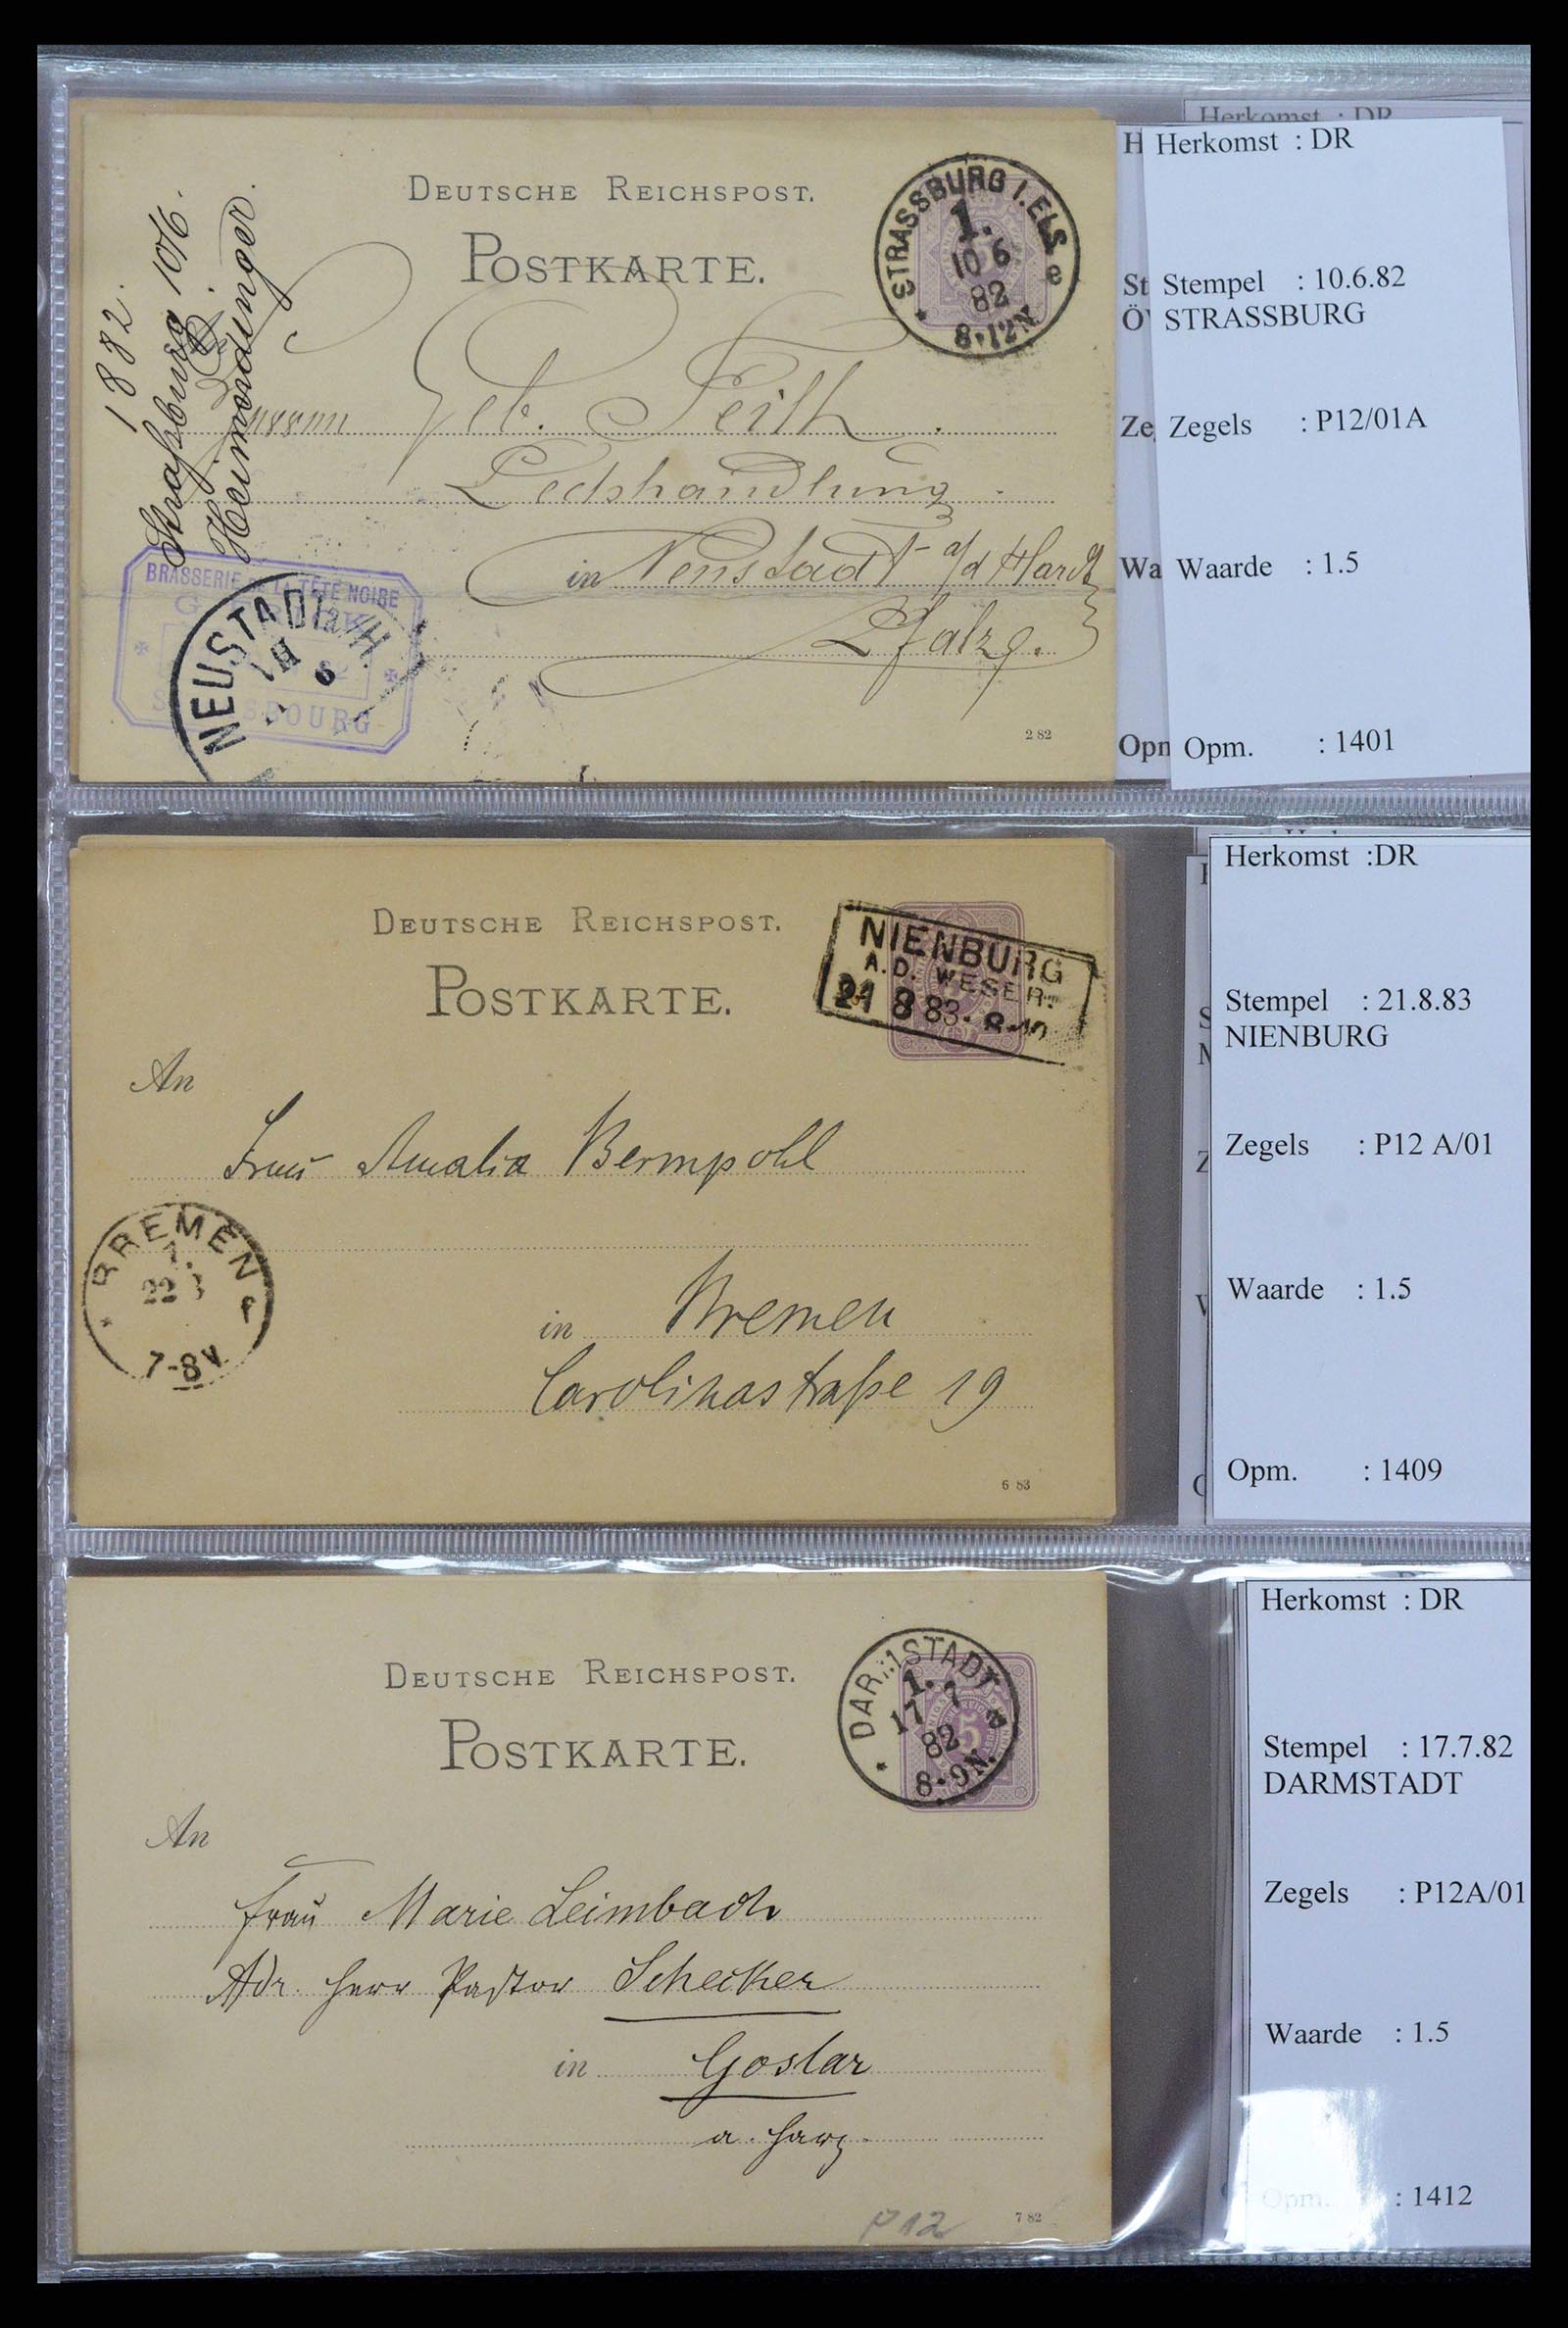 Herkomst : DR
DEUTSCHE REICHSPOST.
POSTKARTE.
STRASSBURG I. ELS.
1.
10 6
82
e
8-12N
1882.
Straßburg 10/6.
Heimerdinger.
Geb. Feith
in Neustadt a/d Hardt
Pfalz.
BRASSERIE DE LA TÊTE NOIRE
NEUSTADT
2 82
H
St
Ö
Ze
Wa
Opm
Herkomst : DR
Stempel : 10.6.82
STRASSBURG
Zegels : P12/01A
Waarde : 1.5
Opm. : 1401
DEUTSCHE REICHSPOST.
POSTKARTE.
NIENBURG
A.D. WESER.
21 8 83. 8-10
An
Frau Amalia Bermpohl
BREMEN
1.
22
f
7-8V.
in Bremen
Carolinastraße 19
6 83
Herkomst :DR
Stempel : 21.8.83
NIENBURG
Zegels : P12 A/01
Waarde : 1.5
Opm. : 1409
DEUTSCHE REICHSPOST.
POSTKARTE.
DARMSTADT
1.
17 7
82
8-9N.
5
An
Frau Marie Leimbach
Adr. Herr Pastor Schecker
in Goslar
a. Harz
P12
7 82
Herkomst : DR
Stempel : 17.7.82
DARMSTADT
Zegels : P12A/01
Waarde : 1.5
Opm. : 1412